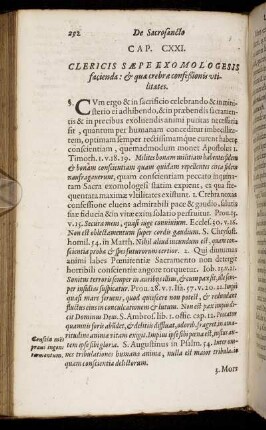 292 De Sacrosancto
CAP. CXXI.
CLERICIS SÆPE EXOMOLOGESIS
facienda: & quæ crebræ confessionis uti-
litates.
§. CVm ergo & in sacrificio celebrando & in mini-
sterio ei adhibendo, & in præbendis sacramen-
tis & in precibus exolvendis animi puritas necessaria
sit, quantum per humanam conceditur imbecillita-
tem, optimam semper rectissimamque curent habere
conscientiam, quemadmodum monet Apostolus 1
Timoth. 1. v. 18. 19. Milites bonam militiam habentes fidem
& bonam conscientiam quam quidam repellentes circa fidem
naufragaverunt, quam conscientiam peccato inquina-
tam Sacra exomologesi statim expiet, ex qua fre-
quentata maximæ utilitates existunt. 1. Crebra noxas
confessione eluens admirabili cor & gaudio, salutis
suæ fiducia & in vitæ exitu solatio perfruitur. Prov. 15.
v. 15. Secura mens, quasi juge convivium. Eccles. 30. v. 16.
Non est oblectamentum super cordis gaudium. S. Chrysost.
homil. 54. in Matth. Nihil aliud jucundum est, quam con-
scientia proba & spes futurorum
animi labes Pœnitentiæ Sacramento non detergit
horribili conscientiæ angore torquetur. Job. 15. v. 21.
Sonitus terroris semper in auribus illius, & cum pax sit, ille sem-
per insidias suspicatur. Prov. 28. v. 1. Isa. 57. v. 20. 21. Impii
quasi mare fervens, quod quiescere non potest, & redundant
fluctus ejus in conculcationem & lutum. Non est pax impiis di-
cit Dominus Deus. S. Ambros. lib. 1. offic. cap. 12. Peccator
quamvis foris abundet, & delitiis diffluat, odoribus fragret, in ama-
ritudine animæ vitam exigit. Impius ipse sibi pœna est, justus au-
tem ipse sibi gloria. S. Augustinus in Psalm. 54. Inter om-
nes tribulationes humana animæ, nulla est major tribulatio
quam conscientia delictorum.
Conscia mēs
prava ingens
tormentum.
3. Mors